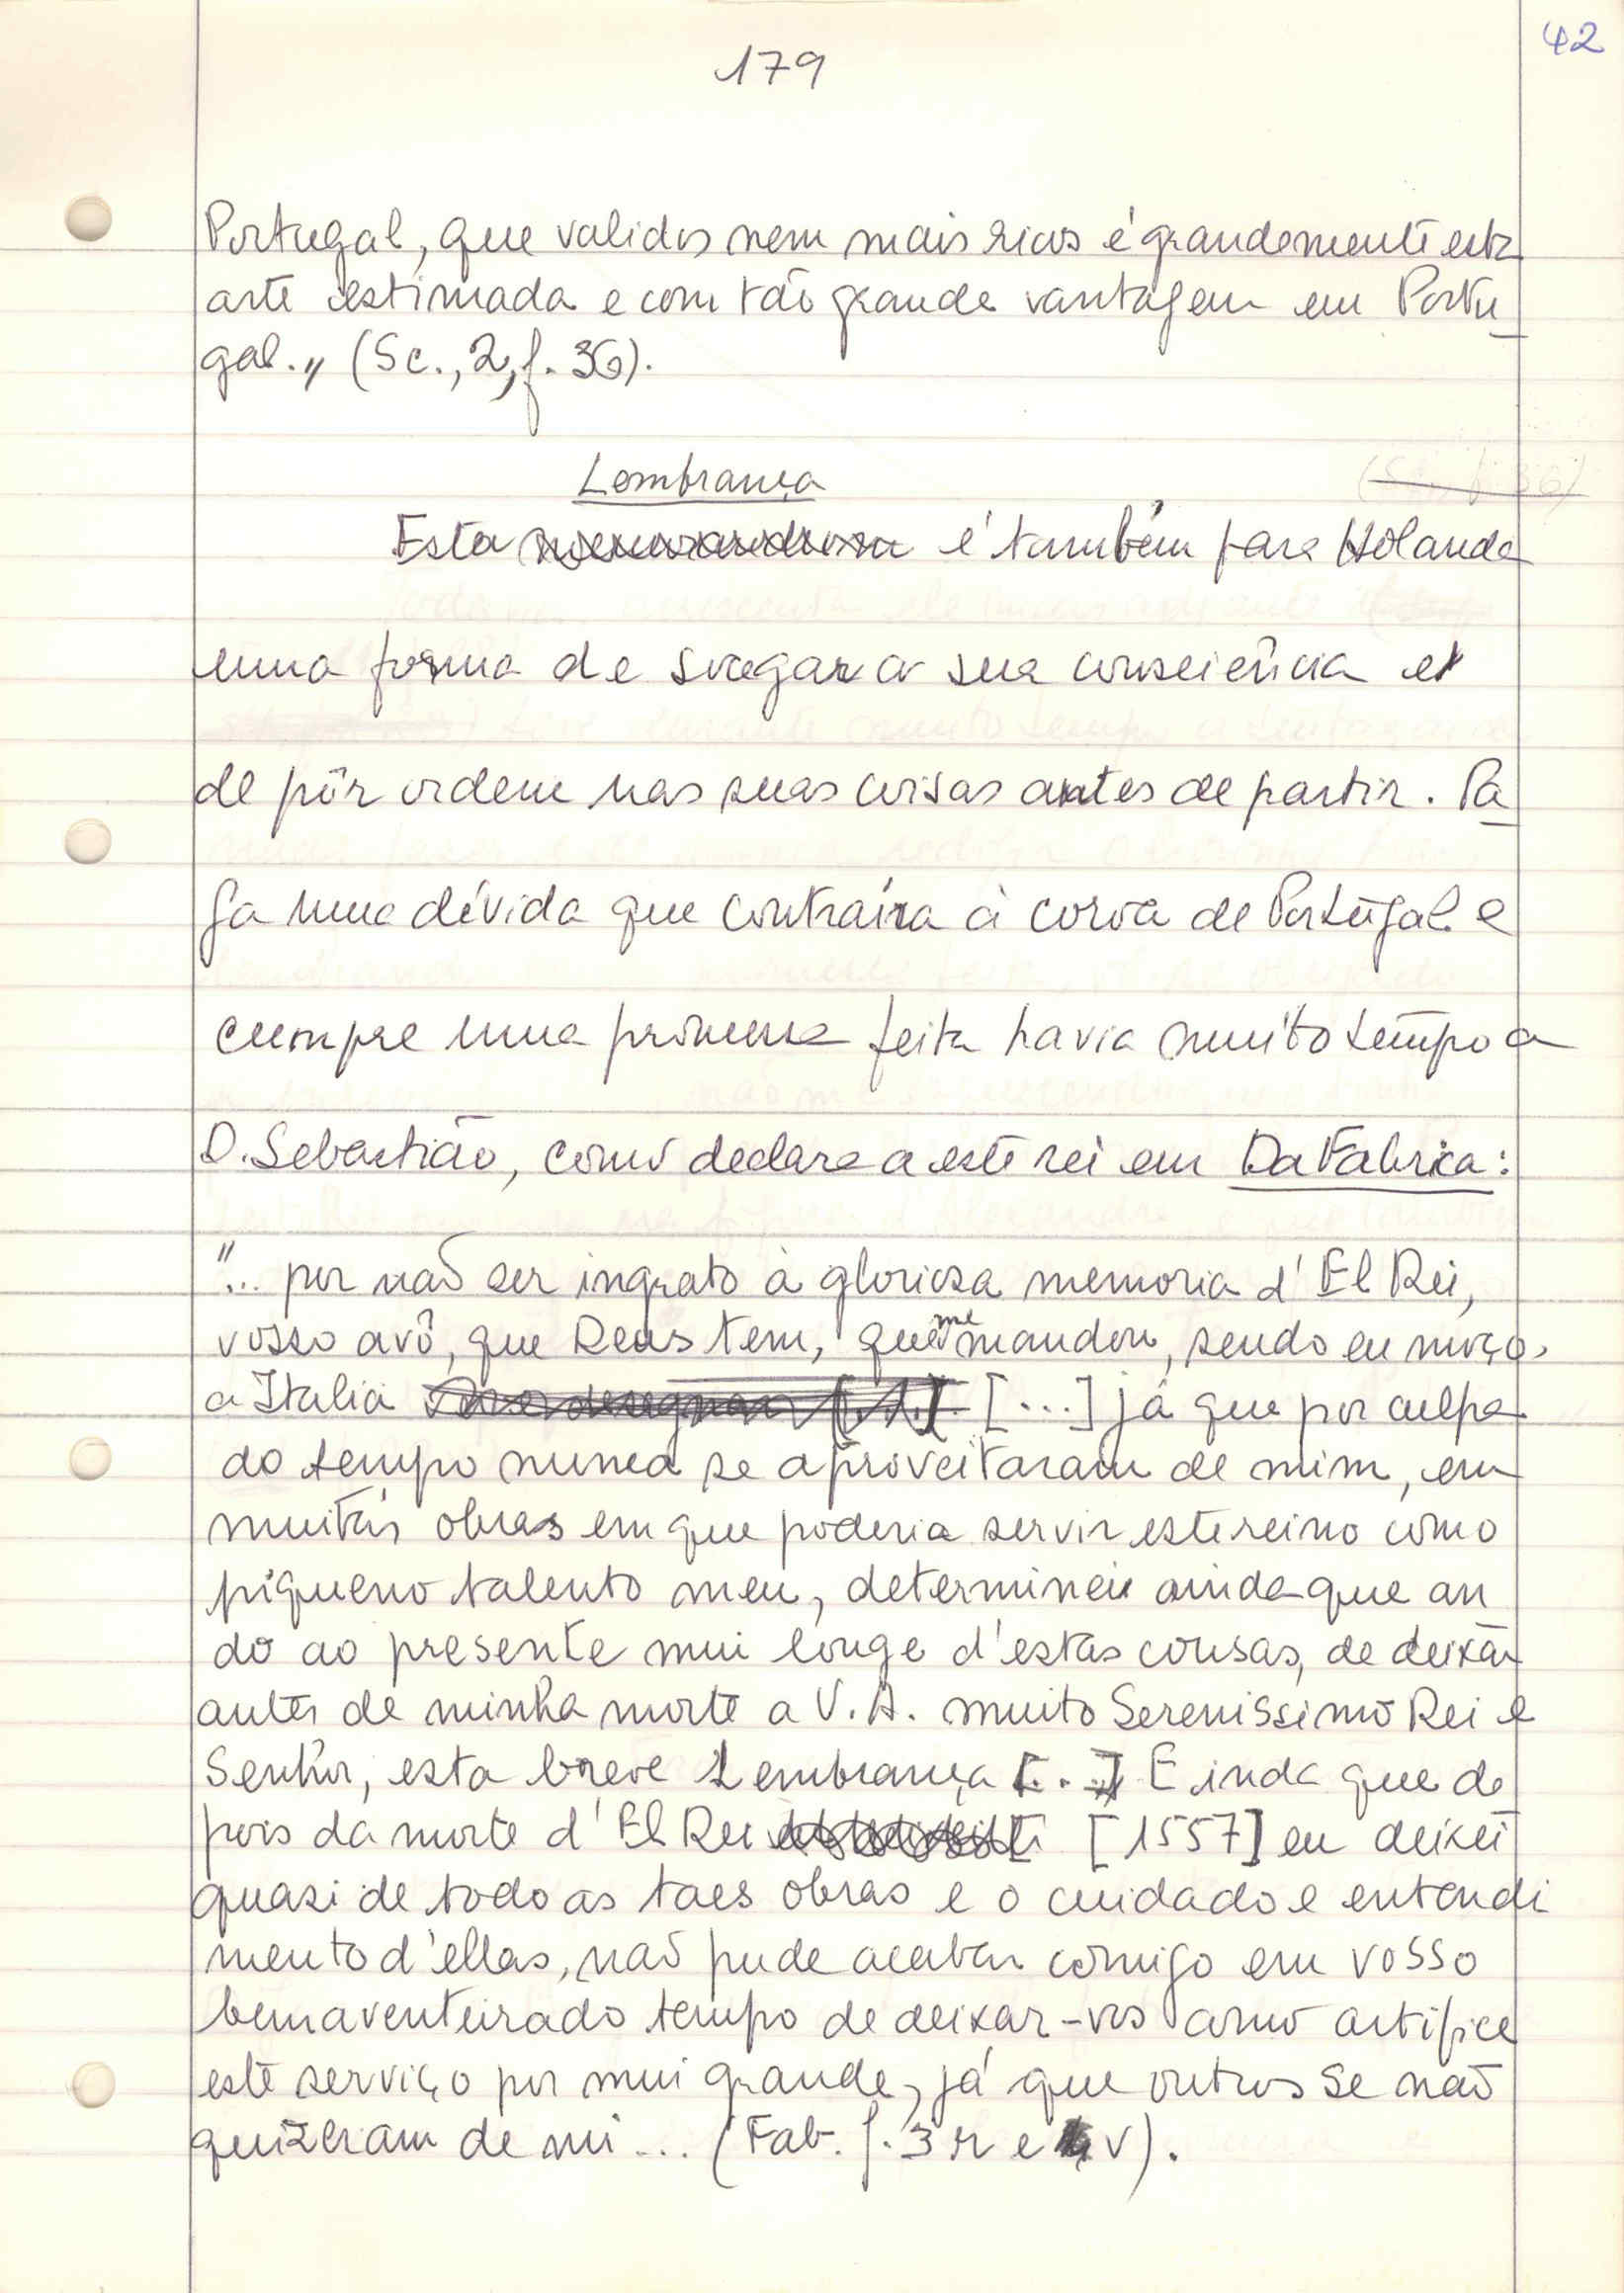 42
179
Portugal, que validos nem mais ricos é grandemente esta
arte estimada e com tão grande vantagem em Portu
gal.,, (Sc., 2, f. 36).
Lembrança
Esta é também para Holanda
uma forma de sossegar a sua consciência e
de pôr ordem nas suas coisas antes de partir. Pa
ga uma dívida que contraíra à coroa de Portugal e
cumpre uma promessa feita havia muito tempo a
D. Sebastião, como declara a este rei em Da Fabrica:
"... por não ser ingrato à gloriosa memoria d'El Rei,
vosso avô, que Deus tem, que me mandou, sendo eu moço,
a Italia [...] já que por culpa
do tempo nunca se aproveitaram de mim, em
muitas obras em que poderia servir este reino como
piqueno talento meu, determinei ainda que an
do ao presente mui longe d'estas cousas, de deixar
antes de minha morte a V. A. muito Serenissimo Rei e
Senhor, esta breve Lembrança [...] E inda que de
pois da morte d'El Rei [1557] eu deixei
quasi de todo as taes obras e o cuidado e entendi
mento d'ellas, não pude acabar comigo em vosso
bemaventeirado tempo de deixar-vos como artifice
este serviço por mui grande, já que outros se não
quizeram de mi... (Fab. f. 3 r e 4 v).